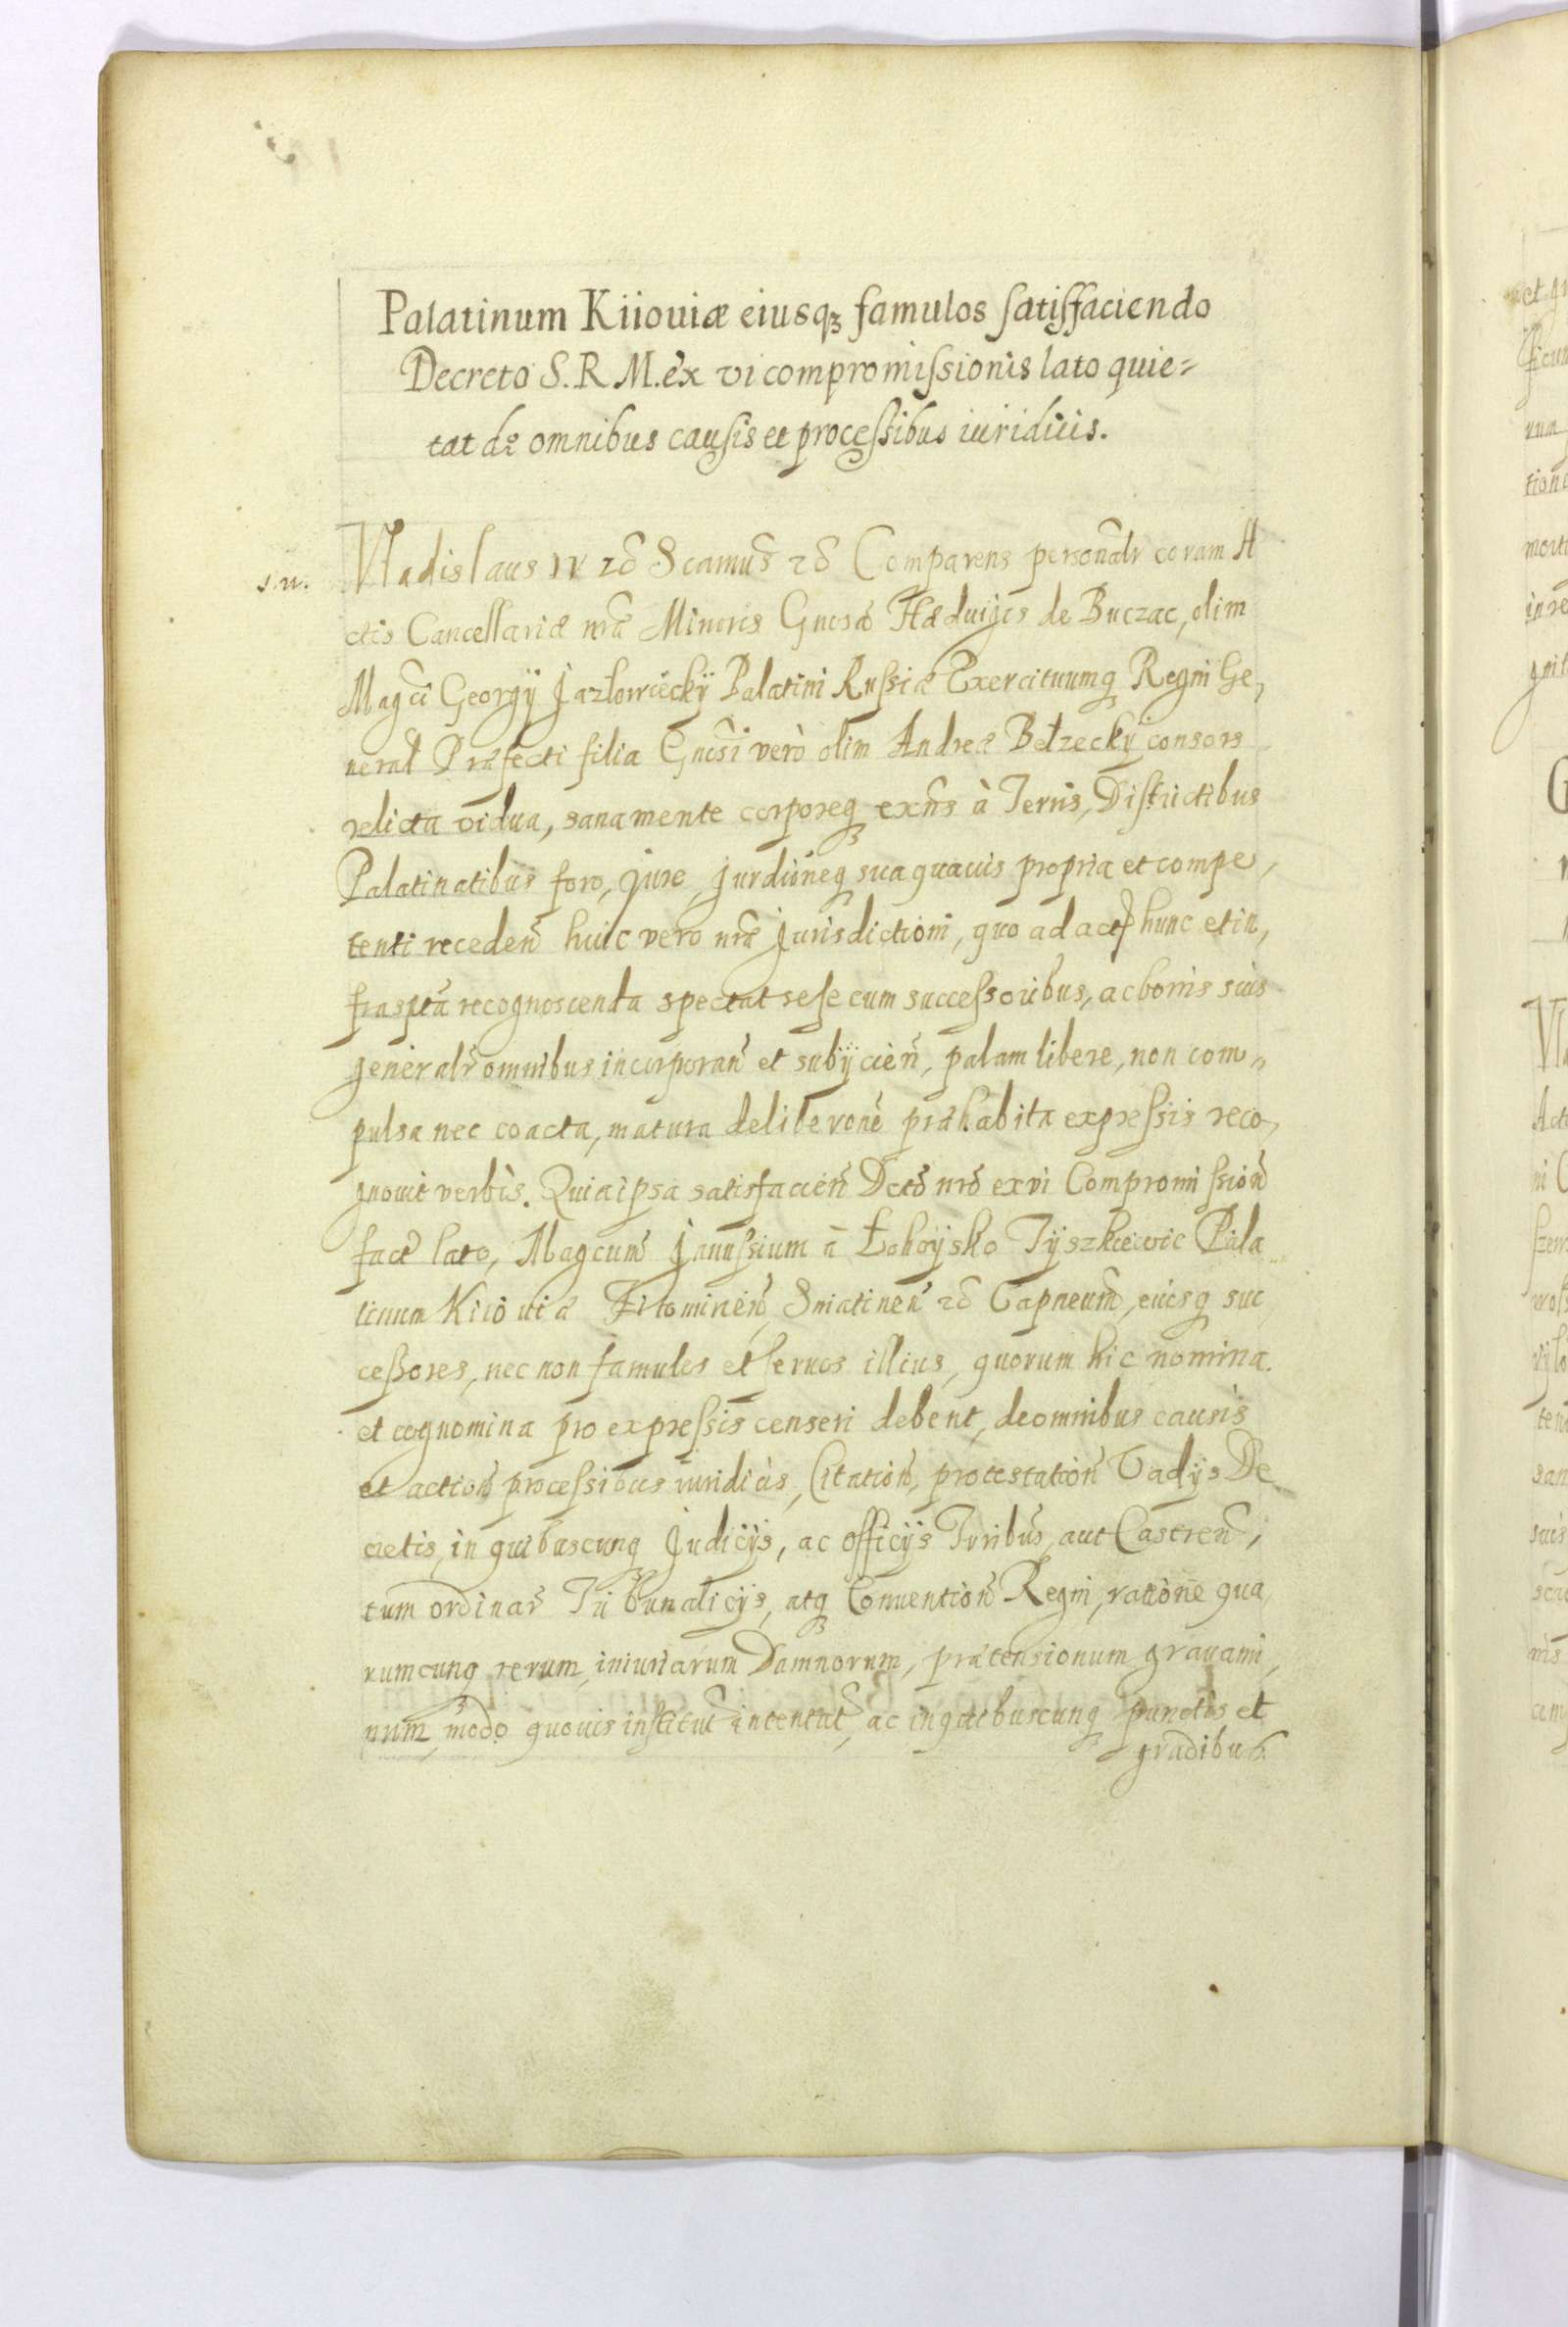 Palatinum Kiiouiæ eiusqꝫ famulos satisfaciendo
Decreto S. R. M. ex vi compromissionis lato quie=
tat de omnibus causis et processibus iuridicis.
Vladislaus IV Comparens personalr coram A
ctis Cancellariæ nrã Minoris Gnosa Hæduiges de Buczac, olim
Magci Georgij Jazlowiecky Palatini Russiæ Exercituumq Regni Ge,
neral Præfecti filia Gnosi verò olim Andreæ Bełzecky consors
relicta vidua, sana mente corporeq exns à Terris, Districtibus
Palatinatibus foro, jure, jurdioneq sua quauis propria et compe,
tenti receden huic vero nræ Jurisdictioni, quo ad act hunc et in,
frasptã recognoscenda spectat sese cum successoribus, ac bonis suis
generalr omnibus incorporan et subijcien, palam libere, non com,,
pulsa nec coacta, matura deliberone præhabita expressis reco,
gnouit verbis. Quia ipsa satisfacien Dcto nro ex vi Compromission
fact lato, Magcum Janussium à Łohoysko Tyszkiewic Pala
tinum Kiiouiæ Zitominen, Sniatinen Capneum, eiusq suc
cessores, nec non famulos et seruos illius, quorum hic nomina
et cognomina pro expressis censeri debent, de omnibus causis
et action processibus iuridicis, Citation, protestation Vadijs De
cretis, in quibuscunq Judicijs, ac officijs Trribus, aut Castren,
tum ordinar Tribunalicijs, atq Conuention Regni, ratione qua
rumcunq rerum, iniuriarum Damnorum, prætensionum grauami,
num, modo quouis institut intentat, ac in quibuscunq punctis et
gradibus